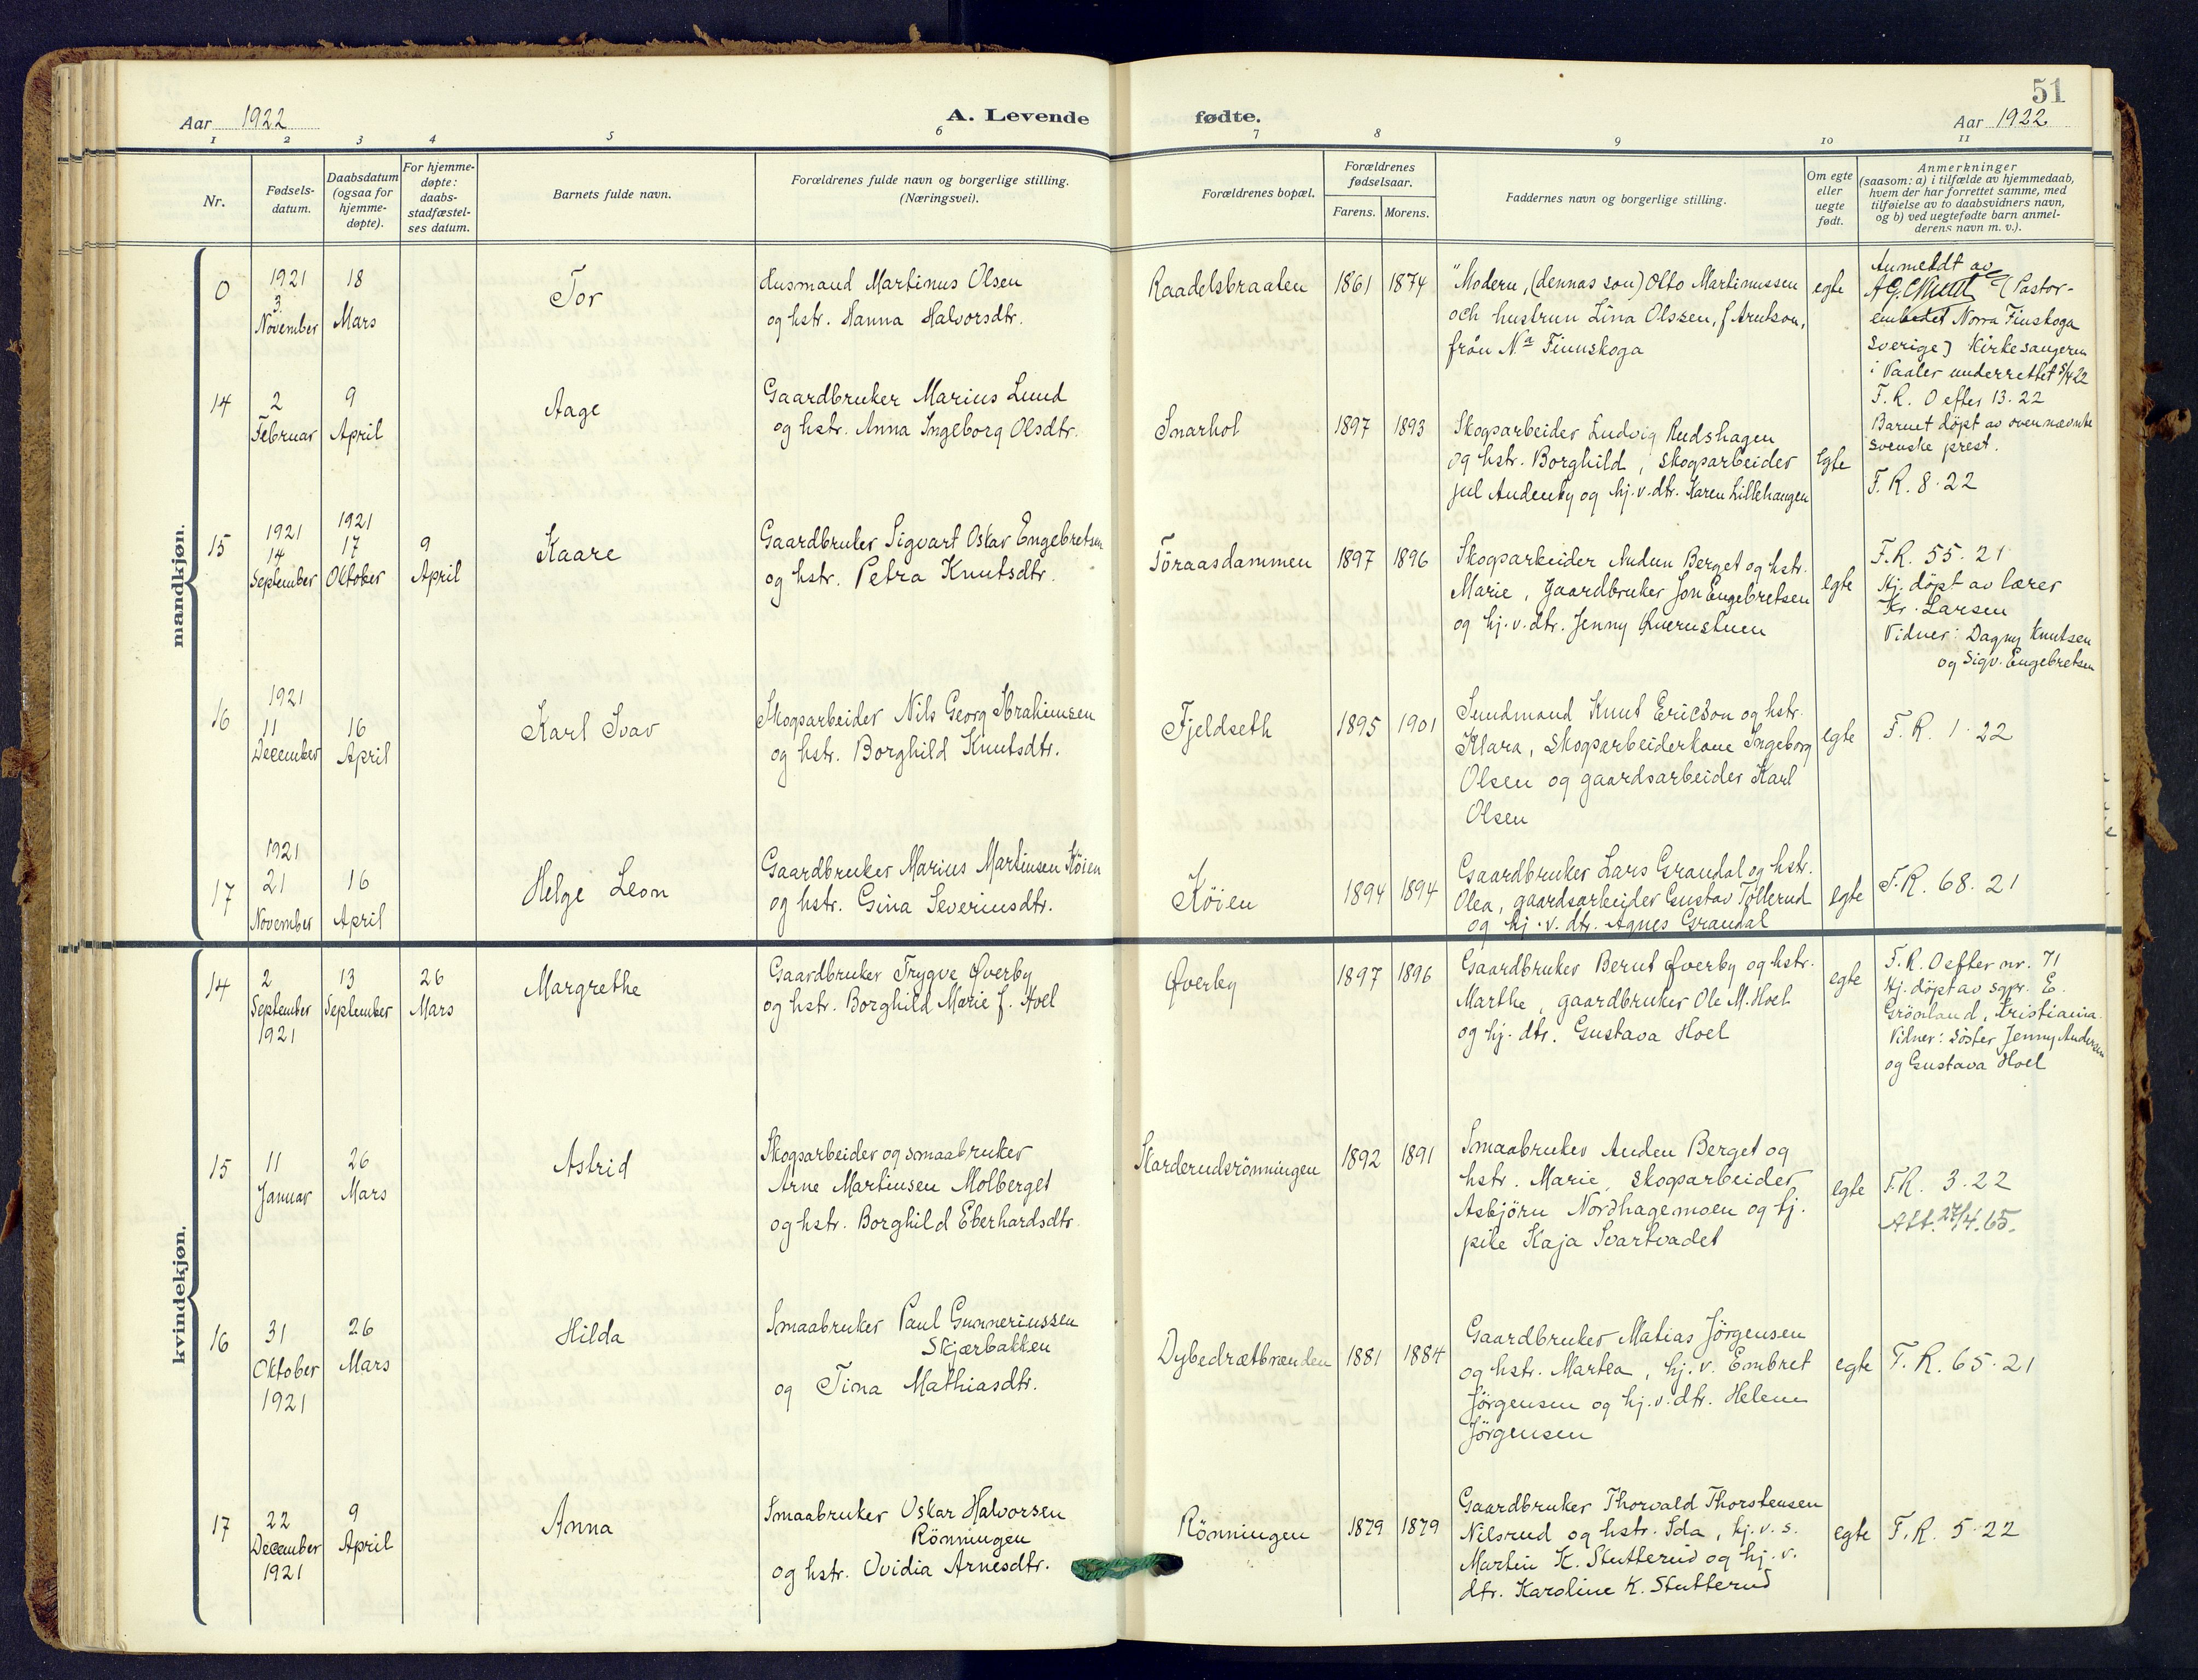 51
Aar 1922
A. Levende
fødte.
Aar 1922
1 2 3 4 5 6 7 8 9 10 11
Nr.
Fødsels-
datum.
Daabsdatum
(ogsaa for
hjemme-
døpte).
For hjemme-
døpte:
daabs-
stadfæstel-
ses datum.
Barnets fulde navn.
Forældrenes fulde navn og borgerlige stilling.
(Næringsvei).
Forældrenes bopæl.
Forældrenes
fødselsaar.
Farens. Morens.
Faddernes navn og borgerlige stilling.
Om egte
eller
uegte
født.
Anmerkninger
(saasom: a) i tilfælde av hjemmedaab,
hvem der har forrettet samme, med
tilføielse av to daabsvidners navn,
og b) ved uegtefødte barn anmel-
derens navn m. v.).
mandkjøn.
0
1921
3.
November
18
Mars
Tor
Husmand Martinus Olsen
og hstr. Hanna Halvorsdtr.
Raadelsbraaten
1861
1874
"Modern, (dennas son) Otto Martinussen
och hustrun Lina Olssen, f. Arntson,
från Na Finnskoga
egte
Anmeldt av
(Pastor-
embedet Norra Finskoga
Sverige) Kirkesangeren
i Vaaler underrettet 5/4 22
F. R. 0 efter 13. 22
Barnet døpt av ovennævnte
svenske prest.
14
2
Februar
9
April
Aage
Gaardbruker Marius Lund
og hstr. Anna Ingeborg Olsdtr.
Snarhol
1897
1893
Skogsarbeider Ludvig Rudshagen
og hstr. Borghild, skogsarbeider
Jul Audenby og hj. v. dtr. Karen Lillehaugen
egte
F. R. 8. 22
15
1921
14
September
1921
17
Oktober
9
April
Kaare
Gaardbruker Sigvart Oskar Engebretsen
og hstr. Petra Knutsdtr.
Töraasdammen
1897
1896
Skogsarbeider Audun Berget og hstr.
Marie, Gaardbruker Jon Engebretsen
og hj. v. dtr. Jenny Qvernstuen
egte
F. R. 55. 21
Hj. döpt av lærer
Kr. Larsen
Vidner: Dagny Knutsen
og Sigv. Engebretsen
16
1921
11
December
16
April
Karl Ivar
Skogsarbeider Nils Georg Abrahimsen
og hstr. Borghild Knutsdtr.
Fjeldseth
1895
1901
Sundmand Knut Ericson og hstr.
Klara, Skogsarbeiderkone Ingeborg
Olsen og gaardsarbeider Karl
Olsen
egte
F. R. 1. 22
17
1921
21
November
16
April
Helge Leon
Gaardbruker Marius Martinsen Köien
og hstr. Gina Severinsdtr.
Köien
1894
1894
Gaardbruker Lars Grandal og hstr.
Olea, gaardsarbeider Gustav Töllerud
og hj. v. dtr. Agnes Grandal
egte
F. R. 68. 21
kvindekjøn.
14
2
September
1921
13
September
26
Mars
Margrethe
Gaardbruker Trygve Øverby
og hstr. Borghild Marie f. Hoel
Øverby
1897
1896
Gaardbruker Bernt Øverby og hstr.
Marthe, gaardbruker Ole M. Hoel
og hj. dtr. Gustava Hoel
egte
F. R. 0 efter nr. 71
Hj. döpt av sgpr. E.
Grönland, Kristiania.
Vidner: Söster Jenny Andersen
og Gustava Hoel
15
11
Januar
26
Mars
Astrid
Skogsarbeider og smaabruker
Arne Martinsen Molberget
og hstr. Borghild Eberhardsdtr.
Skarderudsrönningen
1892
1891
Smaabruker Auden Berget og
hstr. Marie, skogsarbeider
Asbjörn Nordhagemoen og hj.
pike Kaja Svartvadet
egte
F. R. 3. 22
Att. 27/4. 65.
16
31
Oktober
1921
26
Mars
Hilda
Smaabruker Paul Gunneriussen
Skjærbakken
og Tina Mathiasdtr.
Dybedrætbrænden
1881
1884
Gaardbruker Matias Jörgensen
og hstr. Martea, hj. v. Embret
Jörgensen og hj. v. dtr. Helene
Jörgensen
egte
F. R. 65. 21
17
22
December
1921
9
April
Anna
Smaabruker Oskar Halvorsen
Rönningen
og hstr. Ovidia Arnesdtr.
Rönningen
1879
1879
Gaardbruker Thorvald Thorstensen
Nilsrud og hstr. Ida, hj. v. s.
Martin K. Stutterud og hj. v.
dtr. Karoline K. Stutterud
egte
F. R. 5. 22